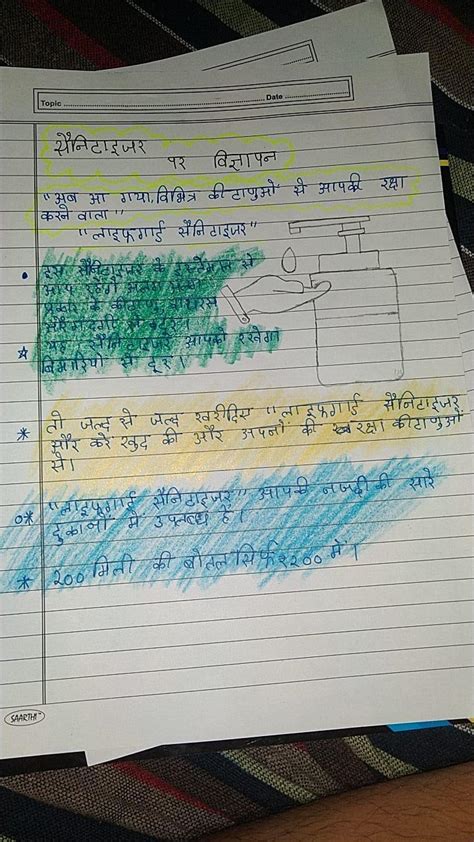 Topic
Date
सैनिटाइजर
पर विज्ञापन
"अब आ गया, विभिन्न कीटाणुओं से आपकी रक्षा
करने वाला"
"लाइफगार्ड सैनिटाइजर"
इस सैनिटाइजर के इस्तेमाल से
आप रहेंगे
प्रकार के कीटाणु, वायरस
और गंदगी से दूर।
यह सैनिटाइजर आपको रखेगा
बिमारियों से दूर।
तो जल्द से जल्द खरीदिए "लाइफगार्ड सैनिटाइजर
और करें खुद की और अपनों की रक्षा कीटाणुओं
से।
"लाइफगार्ड सैनिटाइजर" आपकी नजदीकी सारे
दुकानों में उपलब्ध हैं।
200 मिली की बोतल सिर्फ ₹200 में।
SAARTHI